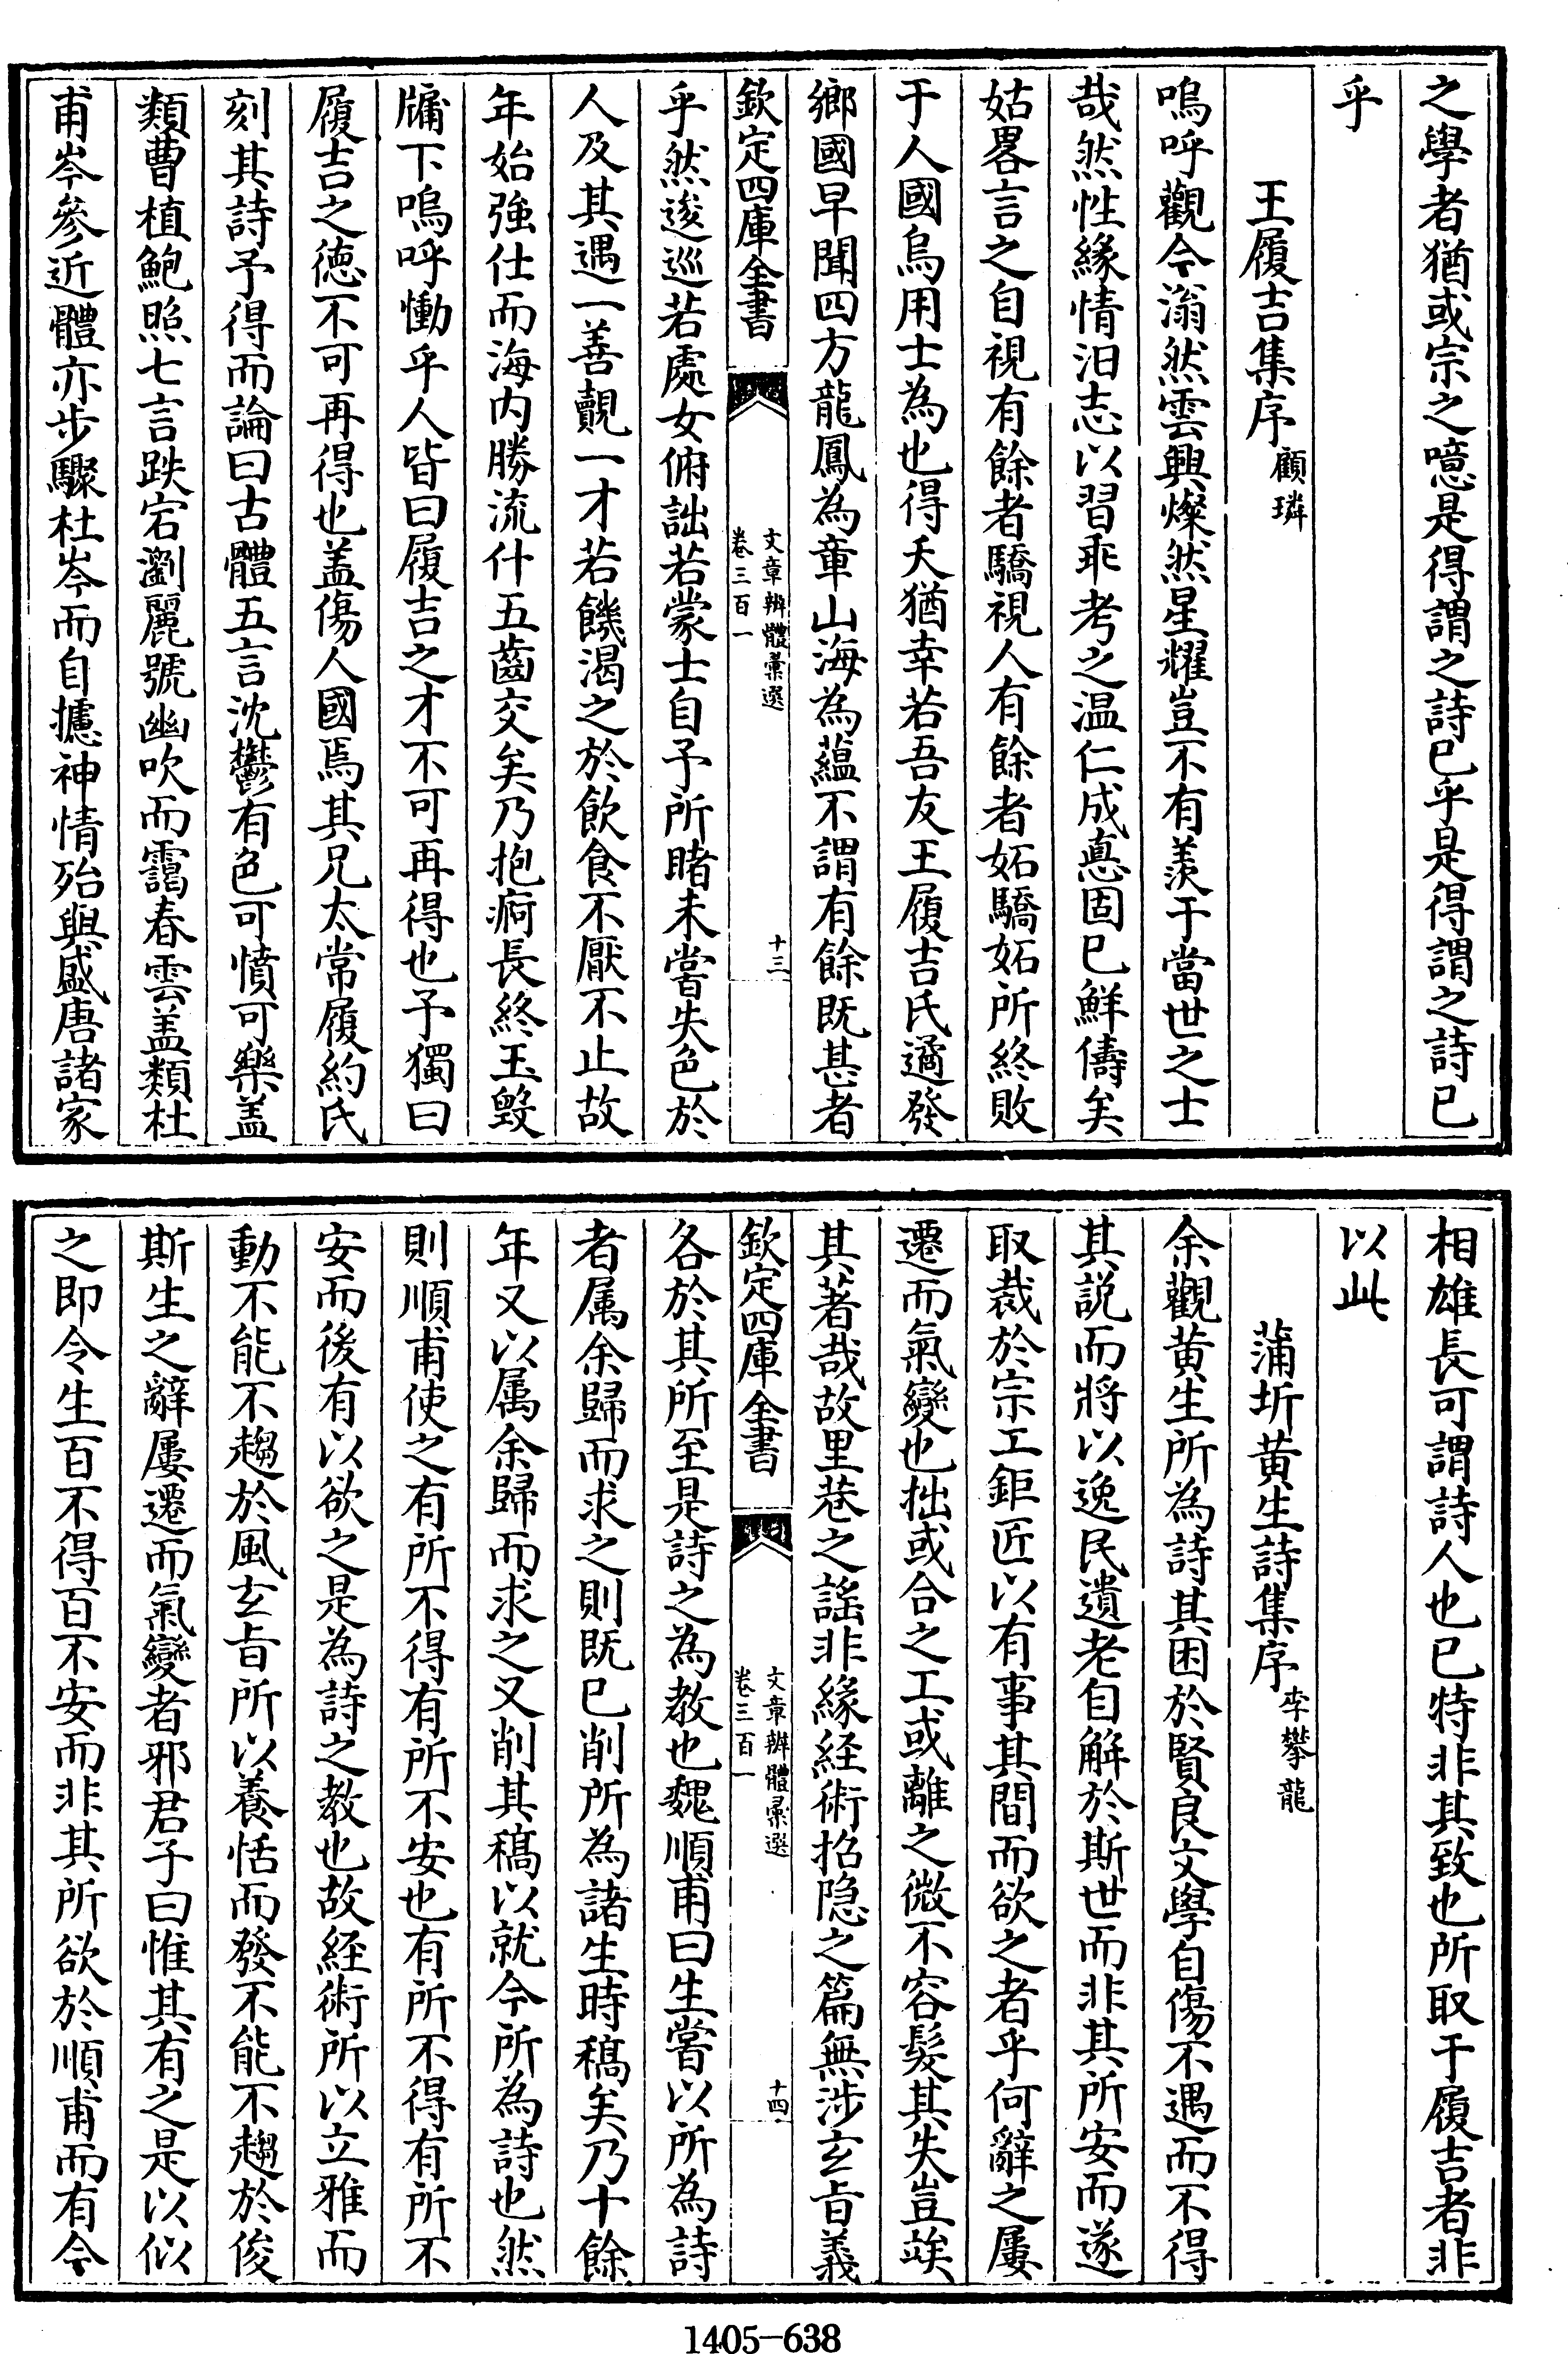 之學者猶或宗之噫是得謂之詩已乎是得謂之詩已
乎
王履吉集序顧璘
嗚呼觀今滃然雲興燦然星耀豈不有羨于當世之士
哉然性緣情汨志以習乖考之温仁成悳固已鮮儔矣
姑畧言之自視有餘者驕視人有餘者妬驕妬所終敗
于人國烏用士為也得夭猶幸若吾友王履吉氏遹發
鄉國早聞四方龍鳳為章山海為藴不謂有餘既甚者
欽定四庫全書
文章辨體彙選
卷三百一
十三
乎然逡巡若處女俯詘若蒙士自予所睹未嘗失色於
人及其遇一善覿一才若饑渴之於飲食不厭不止故
年始強仕而海内勝流什五齒交矣乃抱痾長終玉毁
牖下嗚呼慟乎人皆曰履吉之才不可再得也予獨曰
履吉之徳不可再得也盖傷人國焉其兄太常履約氏
刻其詩予得而論曰古體五言沈鬱有色可憤可樂盖
類曹植鮑照七言跌宕瀏麗號幽吹而靄春雲盖類杜
甫岑參近體亦步驟杜岑而自攄神情殆與盛唐諸家
相雄長可謂詩人也已特非其致也所取于履吉者非
以此
蒲圻黄生詩集序李攀龍
余觀黄生所為詩其困於賢良文學自傷不遇而不得
其説而將以逸民遺老自解於斯世而非其所安而遂
取裁於宗工鉅匠以有事其間而欲之者乎何辭之屢
遷而氣變也拙或合之工或離之微不容髮其失豈竢
其著哉故里巷之謡非緣經術招隐之篇無涉𤣥㫖義
欽定四庫全書
文章辨體彙選
卷三百一
十四
各於其所至是詩之為教也魏順甫曰生嘗以所為詩
者属余歸而求之則既已削所為諸生時稿矣乃十餘
年又以属余歸而求之又削其稿以就今所為詩也然
則順甫使之有所不得有所不安也有所不得有所不
安而後有以欲之是為詩之教也故經術所以立雅而
動不能不趨於風𤣥㫖所以養恬而發不能不趨於俊
斯生之辭屢遷而氣變者邪君子曰惟其有之是以似
之即令生百不得百不安而非其所欲於順甫而有今
1405-638